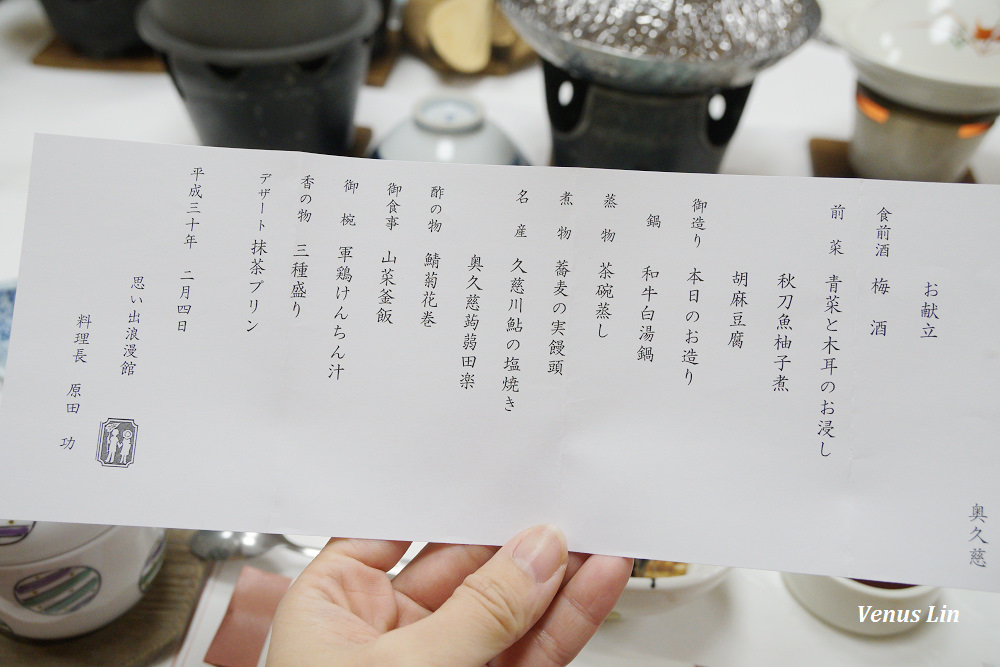 奥久慈
お献立
食前酒 梅 酒
前 菜 青菜と木耳のお浸し
秋刀魚柚子煮
胡麻豆腐
御造り 本日のお造り
鍋 和牛白湯鍋
蒸 物 茶碗蒸し
煮 物 蕎麦の実饅頭
名 産 久慈川鮎の塩焼き
奥久慈蒟蒻田楽
酢の物 鯖菊花巻
御食事 山菜釜飯
御 椀 軍鶏けんちん汁
香の物 三種盛り
デザート 抹茶プリン
平成三十年 二月四日
思い出浪漫館
料理長 原田 功
Venus Lin